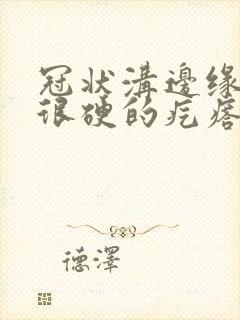 冠状溝邊缘
很硬的疙瘩
德澤